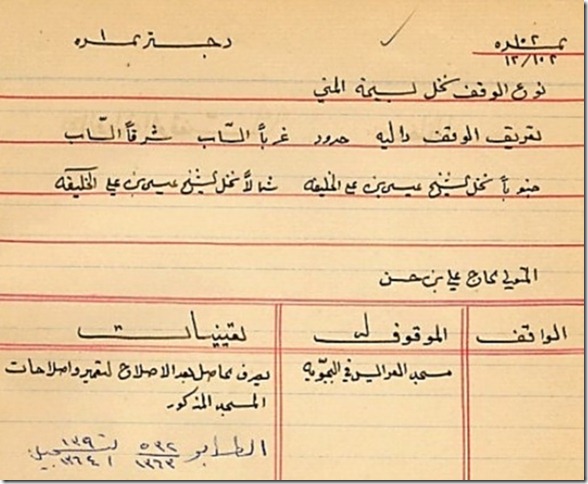 نمره ١٠٢ دفتر نمره ١
١٢/١٠٢
نوع الوقف نخل لسيحة المني
تعريف الوقف داليه حدود غرباً السّاب شرقاً السّاب
جنوباً نخل لشيخ عيسى بن علي الخليفه شمالاً نخل لشيخ عيسى بن علي الخليفه
المتولي الحاج علي بن حسن
الواقف الموقوف له تعيينات
مسجد العوالين في النجبويه
يصرف حاصل بعد الاصلاح لتعمير واصلاحات
المسجد المذكور
الطابو ٥٣٢/١٣٦٣ تسجيل ١٣٩٠/١٣٦٤